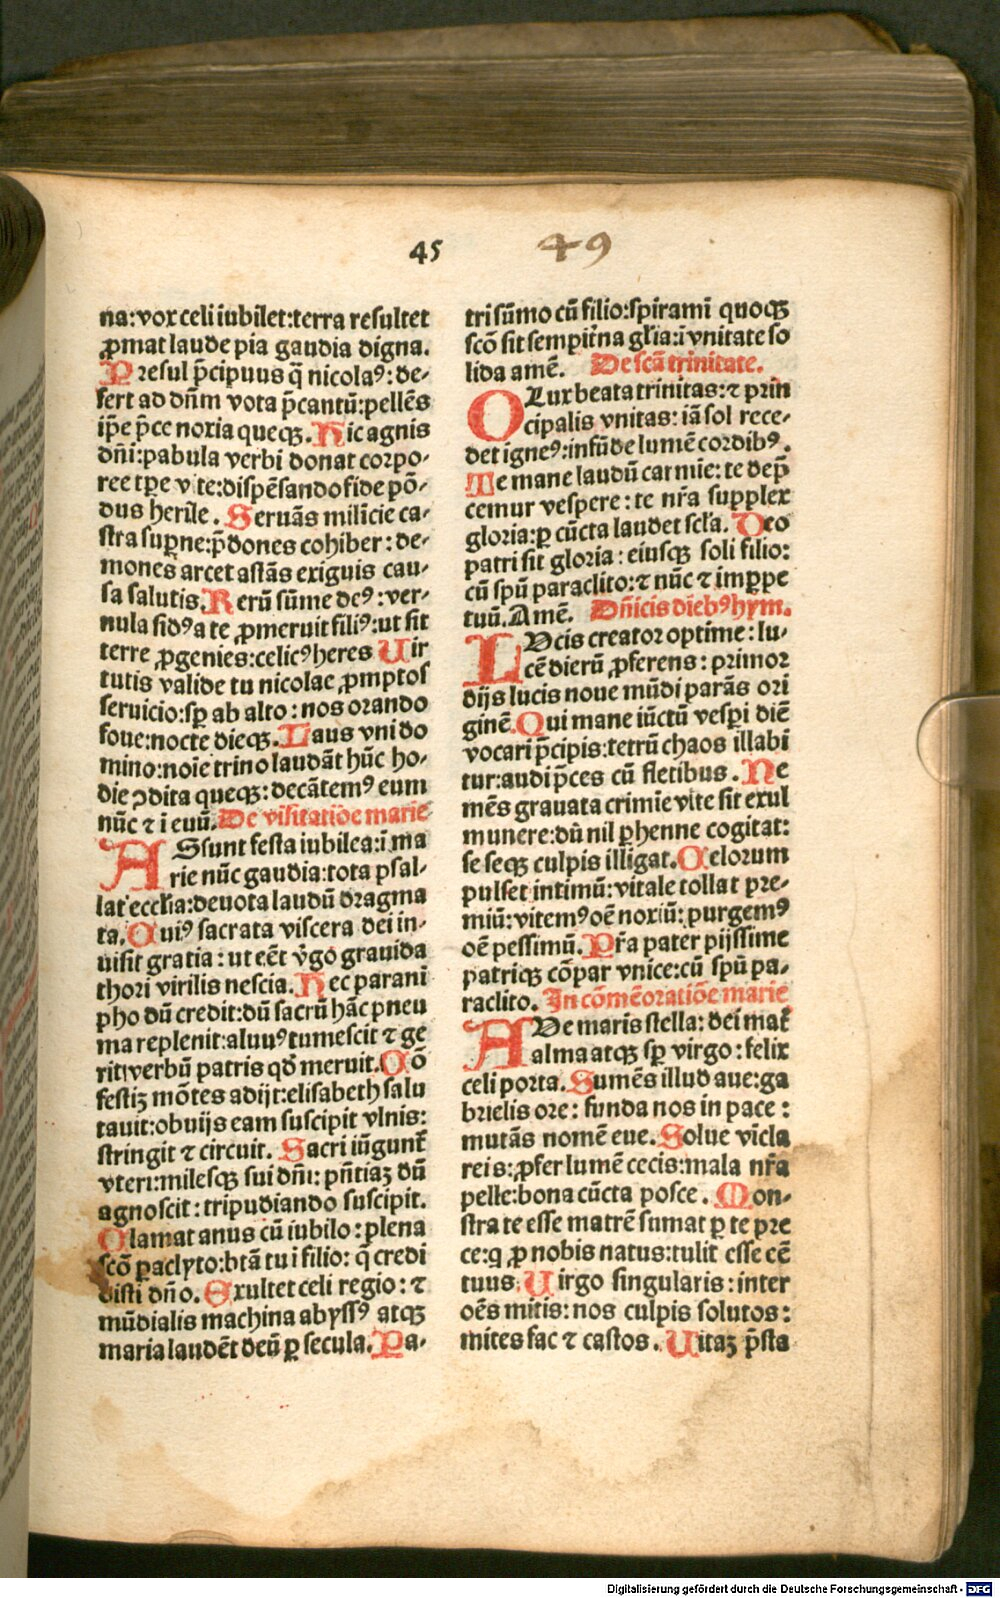 45 49
na: vox celi iubilet: terra resultet
ꝓmat laude pia gaudia digna.
Presul p̄cipuus q̄ nicolaꝰ: de-
fert ad dn̄m vota p̄cantū: pellēs
ip̄e p̄ce noxia queqꝫ. Hic agnis
dn̄i: pabula verbi donat corpo-
ree tꝑe vite: dispēsando fide pō-
dus herile. Seruās milicie ca-
stra suꝑne: p̄dones cohiber: de-
mones arcet astās exiguis cau-
sa salutis. Rerū sūme deꝰ: ver-
nula sidꝰ a te ꝓmeruit filiꝰ: ut sit
terre ꝓgenies: celicꝰ heres Uir
tutis valide tu nicolae ꝓmptos
seruicio: sꝑ ab alto: nos orando
foue: nocte dieqꝫ. Laus vni do
mino: noīe trino laudāt hūc ho-
die ꝯdita queqꝫ: decātemꝰ eum
nūc ⁊ i euū. De visitatiōe marie
ASsunt festa iubilea: ī ma
rie nūc gaudia: tota psal-
lat ecclīa: deuota laudū dragma
ta. Quiꝰ sacrata viscera dei in-
uisit gratia: ut eēt v̄go grauida
thori virilis nescia. Hec parani
pho dū credit: dū sacrū hāc pneu
ma replenit: aluuꝰ tumescit ⁊ ge
rit verbū patris qd̄ meruit. Cō
festiꝫ mōtes adijt: elisabeth salu
tauit: obuijs eam suscipit vlnis:
stringit ⁊ circuit. Sacri iūgunt̄
vteri: milesqꝫ sui dn̄i: pn̄tiaꝫ dū
agnoscit: tripudiando suscipit.
Clamat anus cū iubilo: plena
scō ꝑaclyto: btā tu i filio: q̄ credi
disti dn̄o. Exultet celi regio: ⁊
mūdialis machina abyssꝰ atqꝫ
maria laudēt deū ꝑ secula. Pa-
tri sūmo cū filio: spirami quoqꝫ
scō sit sempit̄na gl̄ia: ī vnitate so
lida amē. De scā trinitate.
O Lux beata trinitas: ⁊ prin
cipalis vnitas: iā sol rece-
det igneꝰ: infūde lumē cordibꝰ.
Te mane laudū carmie: te dep̄
cemur vespere: te nr̄a supplex
gloria: ꝑ cūcta laudet scl̄a. Deo
patri sit gloria: eiusqꝫ soli filio:
cū spū paraclito: ⁊ nūc ⁊ imꝑpe
tuū. Amē. Dn̄icis diebꝰ hym.
LVcis creator optime: lu-
cē dierū ꝓferens: primor
dijs lucis noue mūdi parās ori
ginē. Qui mane iūctū vesꝑi diē
vocari p̄cipis: tetrū chaos illabī
tur: audi p̄ces cū fletibus. Ne
mēs grauata crimie vite sit exul
munere: dū nil ꝑhenne cogitat:
se seqꝫ culpis illigat. Celorum
pulset intimū: vitale tollat pre-
miū: vitemꝰ oē noxiū: purgemꝰ
oē pessimū. Pr̄a pater pijssime
patriqꝫ cōpar vnice: cū spū pa-
raclito. In cōmēoratiōe marie
AUe maris stella: dei mat̄
alma atqꝫ sꝑ virgo: felix
celi porta. Sumēs illud aue: ga
brielis ore: funda nos in pace:
mutās nomē eue. Solue vīcla
reis: ꝓfer lumē cecis: mala nr̄a
pelle: bona cūcta posce. Mon-
stra te esse matrē sumat ꝑ te pre
ce: q ꝓ nobis natus: tulit esse cē
tuus. Uirgo singularis: inter
oēs mitis: nos culpis solutos:
mites fac ⁊ castos. Uitaꝫ p̄sta
Digitalisierung gefördert durch die Deutsche Forschungsgemeinschaft - DFG